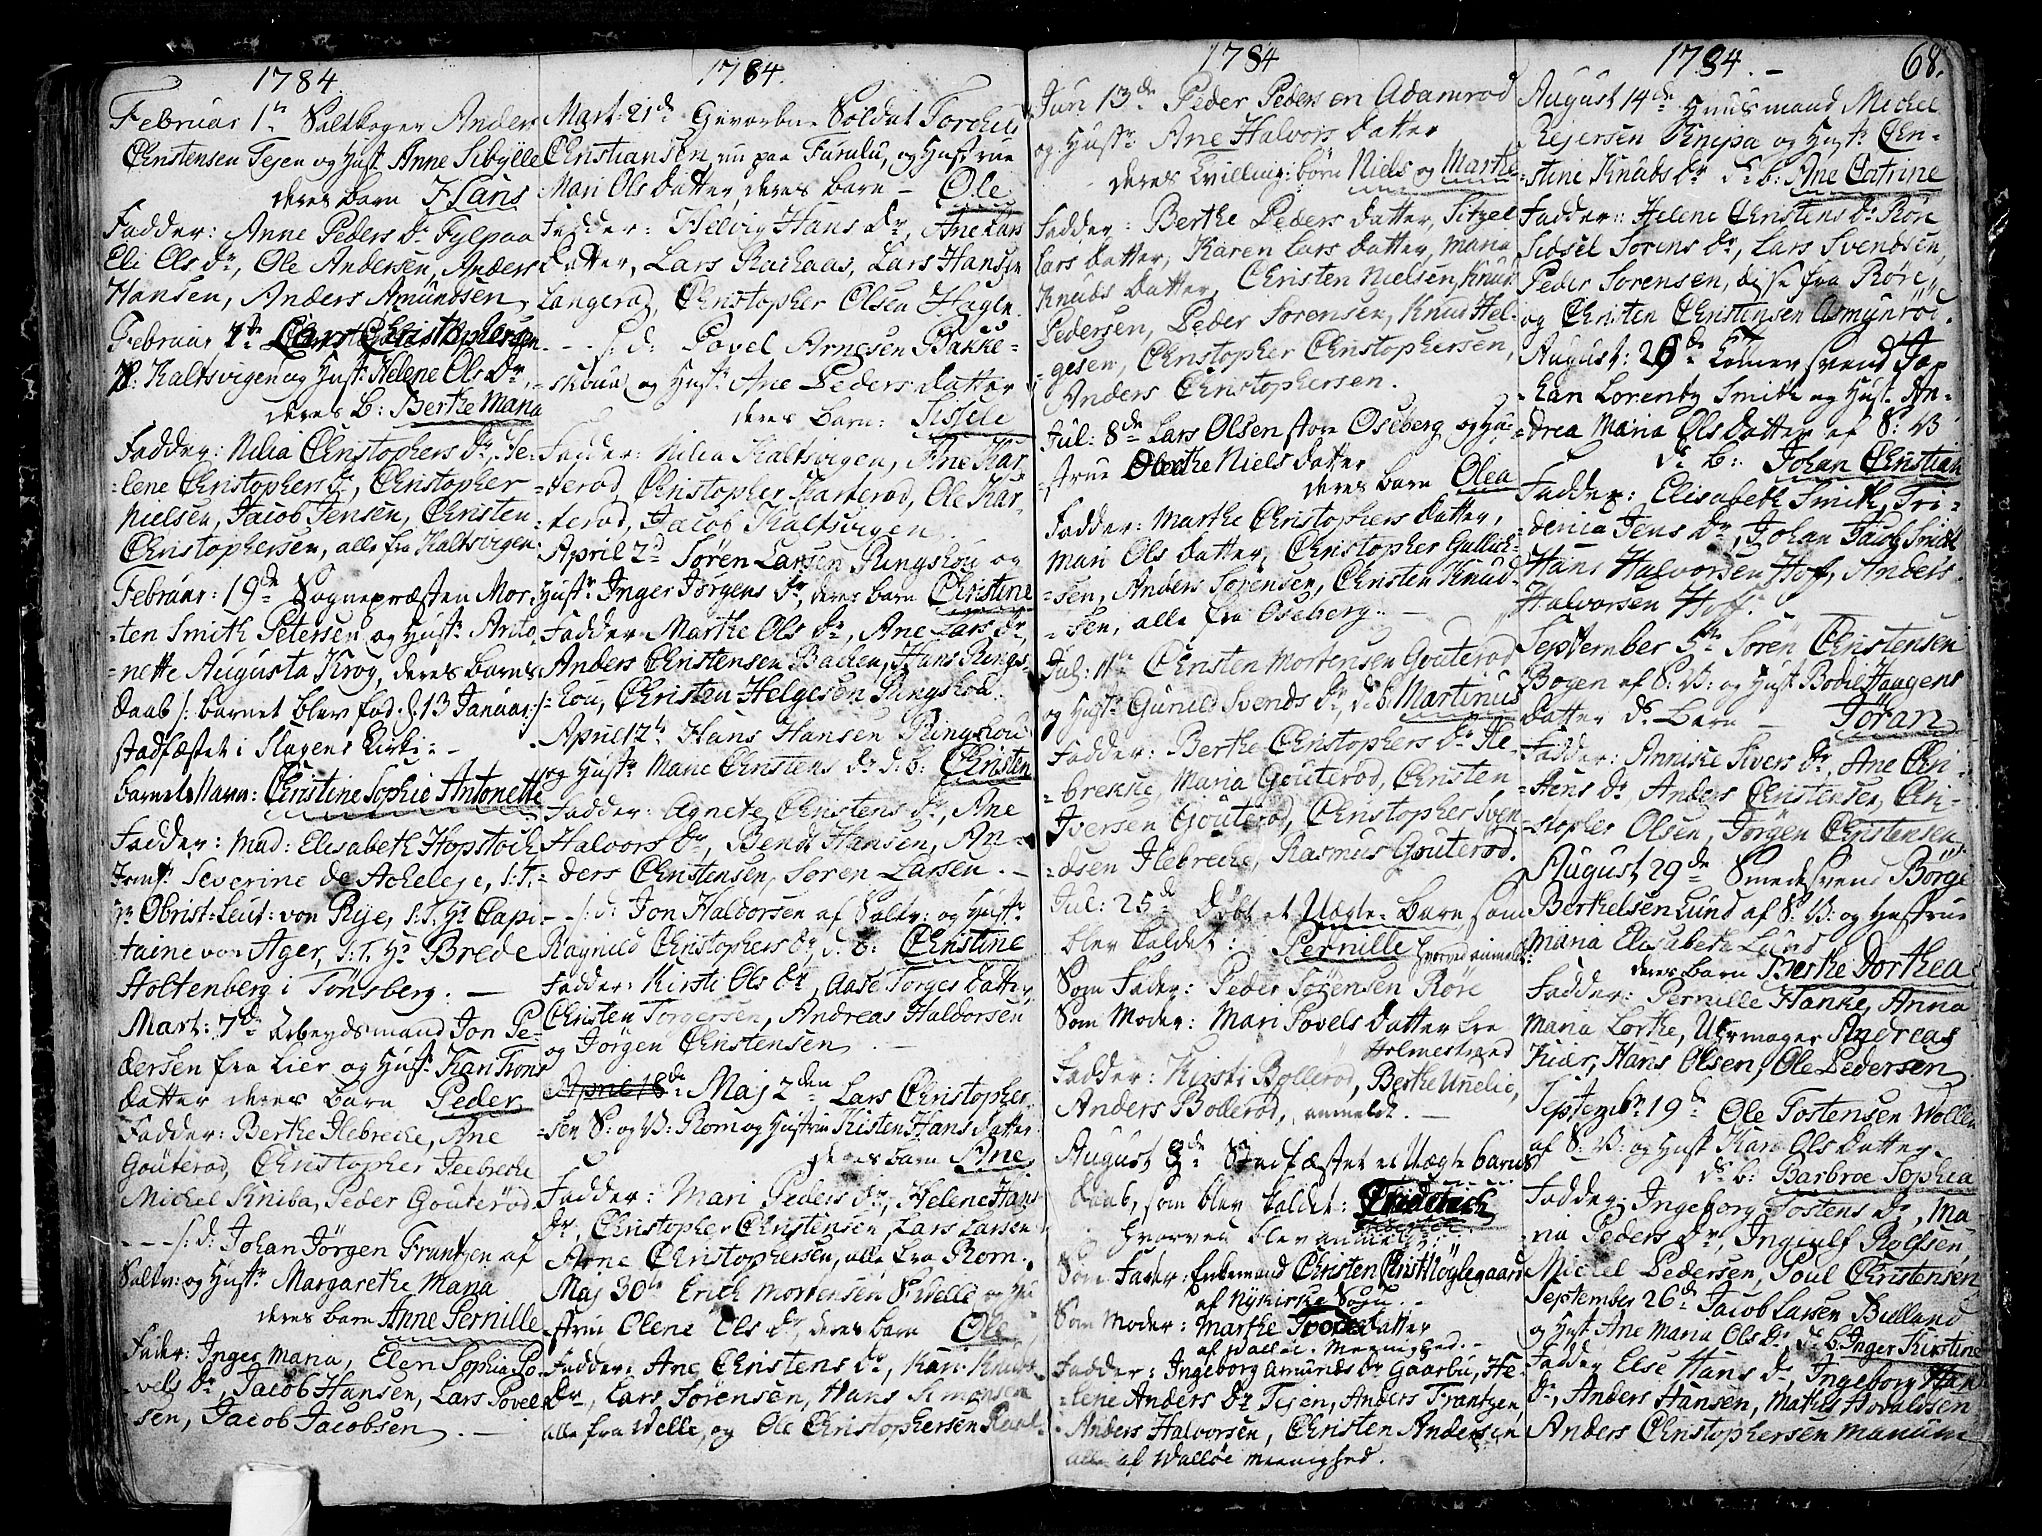 1784.
Februar 1te Saltkoger Anders
Christensen Tejen og Hust Anne Sibylle
deres barn Hans
Fadder: Anne Peders Dr Fylpaa
Eli Ols Dr, Ole Andersen, Anders
Hansen, Anders Amundsen,
Februar Lars Christophersen
Kaltsvigen og Hust: Helene Ols Dr,
deres B: Berthe Maria
Fadder: Nilia Christophers Dr, He-
-lene Christophers Dr, Christopher
Nielsen, Jacob Jensen, Christen
Christophersen, alle fra Kaltsvigen
Februar: 19de Sognepræsten Mor-
-ten Smith Petersen og Hustr Anto-
-nette Augusta Krog, deres barns
Daab /: barnet blev fød d 13 Januar :/
stadfæstet i Slagens Kirke -
barnets Navn: Christine Sophie Antonette
Fadder: Mad: Elisabeth Hopstock
Jomf. Severine de Acheleje, S:T:
Hr Obrist-Leut: von Rye, S:T: Hr Capi-
taine von Ager, S:T: Hr Brede
Stoltenberg i Tönsberg. -
Mart: 7de Arbeydsmand Jon Pe-
dersen fra Lier og Hustr Kari Trons
datter deres barn Peder
Fadder: Berthe Ilebreche, Ane
Gouterød, Christopher Ileebreche
Michel Kniba, Peder Gouterød
- - - /: d: Johan Jörgen Frantzen af
Saltv: og Hustr Margarethe Maria
deres barn Anne Pernille
Fader: Inger Maria, Elen Sophia Po-
-vels Dr, Jacob Hansen, Lars Povel-
sen, Jacob Jacobsen. -
1784.
Mart: 21de Gevorbne Soldat Torchel
Christiansen, nu paa Furulu, og Hustrue
Mari Ols datter, deres barn - Ole
Fadder: Helvig Hans Dr, Ane Lars
datter, Lars Rachaas, Lars Hansen
Langerød, Christopher Olsen Hagen.
- - - /: d: Povel Arnesen Bakke-
-skouu og Hustr Ane Peders datter
deres barn: Sissele
Fadder: Nilia Kaltsvigen, Ane Kar-
-terød, Christopher Karterød, Ole Kar-
-terød, Jacob Kaltsvigen
April 2d Sören Larsen Ringshou og
Hustr Inger Jörgens Dr, deres barn Christine
Fadder: Marthe Ols Dr, Ane Lars Dr,
Anders Christensen Bachen, Hans Rings-
-hou, Christen Helgesen Ringshou.
April 12te Hans Hansen Ringshou
og Hustr Marie Christens Dr d: b: Christen
Fadder: Agnete Christens Dr, Ane
Halvors Dr, Bendt Hansen, An-
-ders Christensen, Sören Larsen. -
- - - /: d: Jon Haldorsen af Saltv: og Hustr
Ragnild Christophers Dr, d: b: Christine
Fadder: Kirsti Ols Dr, Aase Torges datter,
Christen Torgersen, Andreas Haldorsen
og Jörgen Christensen. -
April 18de: Maj 2den Lars Christopher-
-sen S: og V: Rom og Hustrue Kisten Hans datter
deres barn Ane
Fadder: Mari Peders Dr, Helene Hans
Dr, Christopher Christensen, Lars Larsen
Arne Christophersen, alle fra Rom.
Maj 30te Erich Mortensen Velle og Hu-
strue Olene Ols Dr, deres barn Ole
Fadder: Ane Christens Dr, Kari Knuds
Dr, Lars Sörensen, Hans Simonsen
alle fra Velle, og Ole Christophersen
1784
Jun 13de Peder Pedersen Adamrød
og Hustr Ane Halvors datter
deres Tvilling: börn Niels og Marthe
Fadder: Berthe Peders datter, Sitzel
Lars datter, Karen Lars datter, Maria
Knuds datter, Christen Nielsen, Knud
Pedersen, Peder Sorensen, Knud Hel-
-gesen, Christopher Christophersen,
Anders Christophersen.
Jul: 8de Lars Olsen store Oseberg og Hu-
-strue Berthe Niels datter
deres barn Olea
Fadder: Marthe Christophers datter,
Mari Ols datter, Christopher Gullich-
-sen, Anders Sorensen, Christen Knud-
-sen, alle fra Oseberg. -
Jul: 11te Christen Mortensen Gouterød
og Hustr Gunild Svends Dr, d: b: Martinus
Fadder: Berthe Christophers Dr Ile-
-breche, Maria Gouterød, Christen
Iversen Gouterød, Christopher Sven-
-dsen Ilebreche, Rasmus Gouterød.
Jul: 25de Döbt et Uægte barn, som
blev kaldet: Pernille hvorved anmeldt
Som Fader: Peder Sörensen Röre
Som Moder: Mari Povels datter fra
Holmestrand
Fadder: Kirsti Bollerød, Berthe Unelie,
Anders Bollerød, anmeldt. -
August 8de Stadfæstet et Uægte barns
Daab, som blev kaldet: Friderich
hvorved blev anmeldt:
Som Fader: Enkemand Christen Christ: Röglegaard
af Nykirke Sogn. -
Som Moder: Marthe Tords datter
af Walløe Meenighed. -
Fadder: Ingeborg Amunds Dr Gaarbu, He-
-lene Anders Dr Tejen, Anders Frantzen,
Anders Halvorsen, Christen Andersen
alle af Walløe Meenighed.
1784. -
68.
August 14de Huusmand Michel
Rejersen Knipa og Hustr Chri-
-stine Knuds Dr D: b: Ane Catrine
Fadder: Helene Christens Dr Röre
Sidsel Sorens Dr, Lars Svendsen,
Peder Sorensen, disse fra Röre,
og Christen Christensen Asmynrød.
August: 26de Tömersvend Jo-
-han Lorentz Smith og Hust An-
-drea Maria Ols datter af S: V:
d: b: Johan Christian
Fadder: Elisabeth Smith, Fri-
-derica Jens Dr, Johan Jacob Smidt
Hans Halvorsen Hof, Anders
Halvorsen Hoff.
September 5te Sören Christensen
Bogen af S: V: og Hust Bodil Haagens
datter Ds barn - Jöran
Fadder: Anniche Sivers Dr, Ane Chri-
-stens Dr, Anders Christensen, Chri-
-stopher Olsen, Jörgen Christensen
August 29de Smedesvend Börge
Berthelsen Lund af S: V: og Hustrue
Maria Elisabeth Lund
deres barn Berthe Dorthea
Fadder: Pernille Hanke, Anna
Maria Lorthe, Uhrmager Andreas
Kiær, Hans Olsen, Ole Pedersen
Septembr 19de Ole Tostensen Wollen
af S: V: og Hust Kari Ols datter.
Ds b: Barbroe Sophia
Fadder: Ingeborg Tostens Dr, Ma-
-ria Peders Dr, Ingeulf Rolfsen,
Michel Pedersen, Poul Christensen
September 26de Jacob Larsen Bulland
og Hust Ane Maria Ols Dr, Ds b: Inger Kirstine
Fadder Else Hans Dr, Ingeborg Han
Dr, Anders Hansen, Mathis Hovaldsen
Anders Christophersen Manum